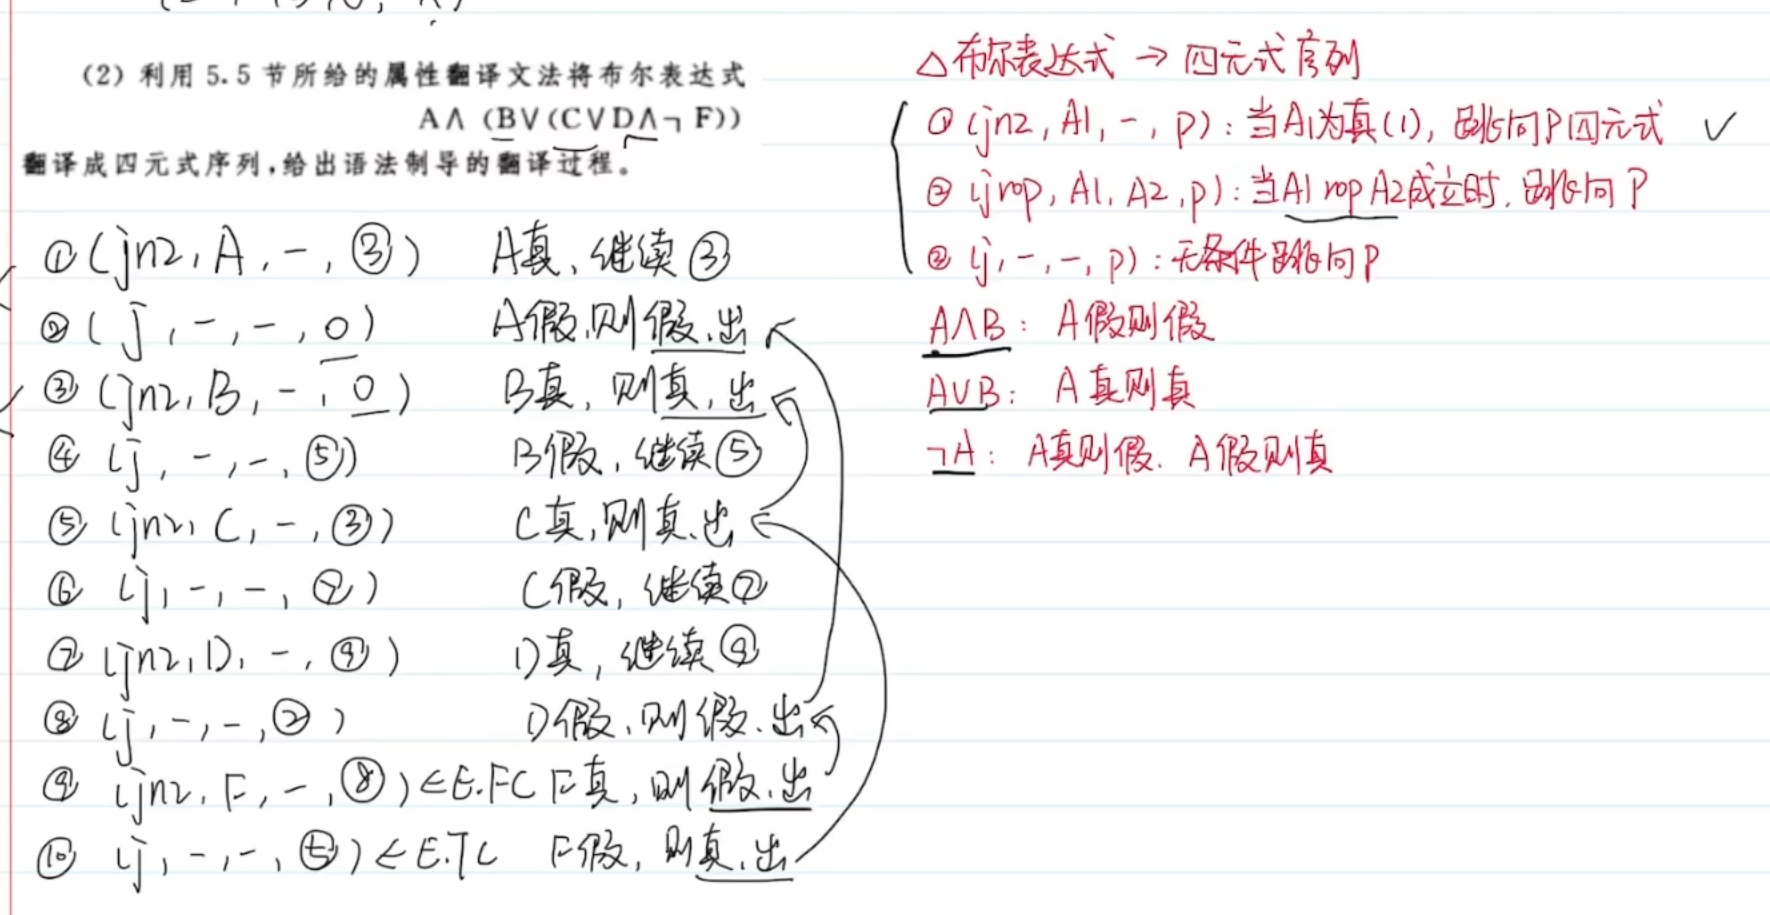 (2) 利用 5.5 节所给的属性翻译文法将布尔表达式
A∧ (B∨(C∨D∧¬ F))
翻译成四元式序列,给出语法制导的翻译过程。
① (jnz, A, -, ③) A真、继续③
② (j, -, -, 0) A假,则假、出
③ (jnz, B, -, 0) B真, 则真, 出
④ (j, -, -, ⑤) B假, 继续⑤
⑤ (jnz, C, -, ③) C真,则真、出
⑥ (j, -, -, ⑦) C假, 继续⑦
⑦ (jnz, D, -, ⑨) D真, 继续⑨
⑧ (j, -, -, ②) D假、则假、出
⑨ (jnz, F, -, ⑧) ← E.FC F真, 则假、出
⑩ (j, -, -, ⑤) ← E.TC F假, 则真、出
△布尔表达式 → 四元式序列
① (jnz, A1, -, p): 当A1为真(1), 跳向P四元式 ✓
② (jrop, A1, A2, p): 当A1 rop A2成立时, 跳向 P
③ (j, -, -, p): 无条件跳向P
A∧B: A假则假
A∨B: A真则真
¬A: A真则假. A假则真